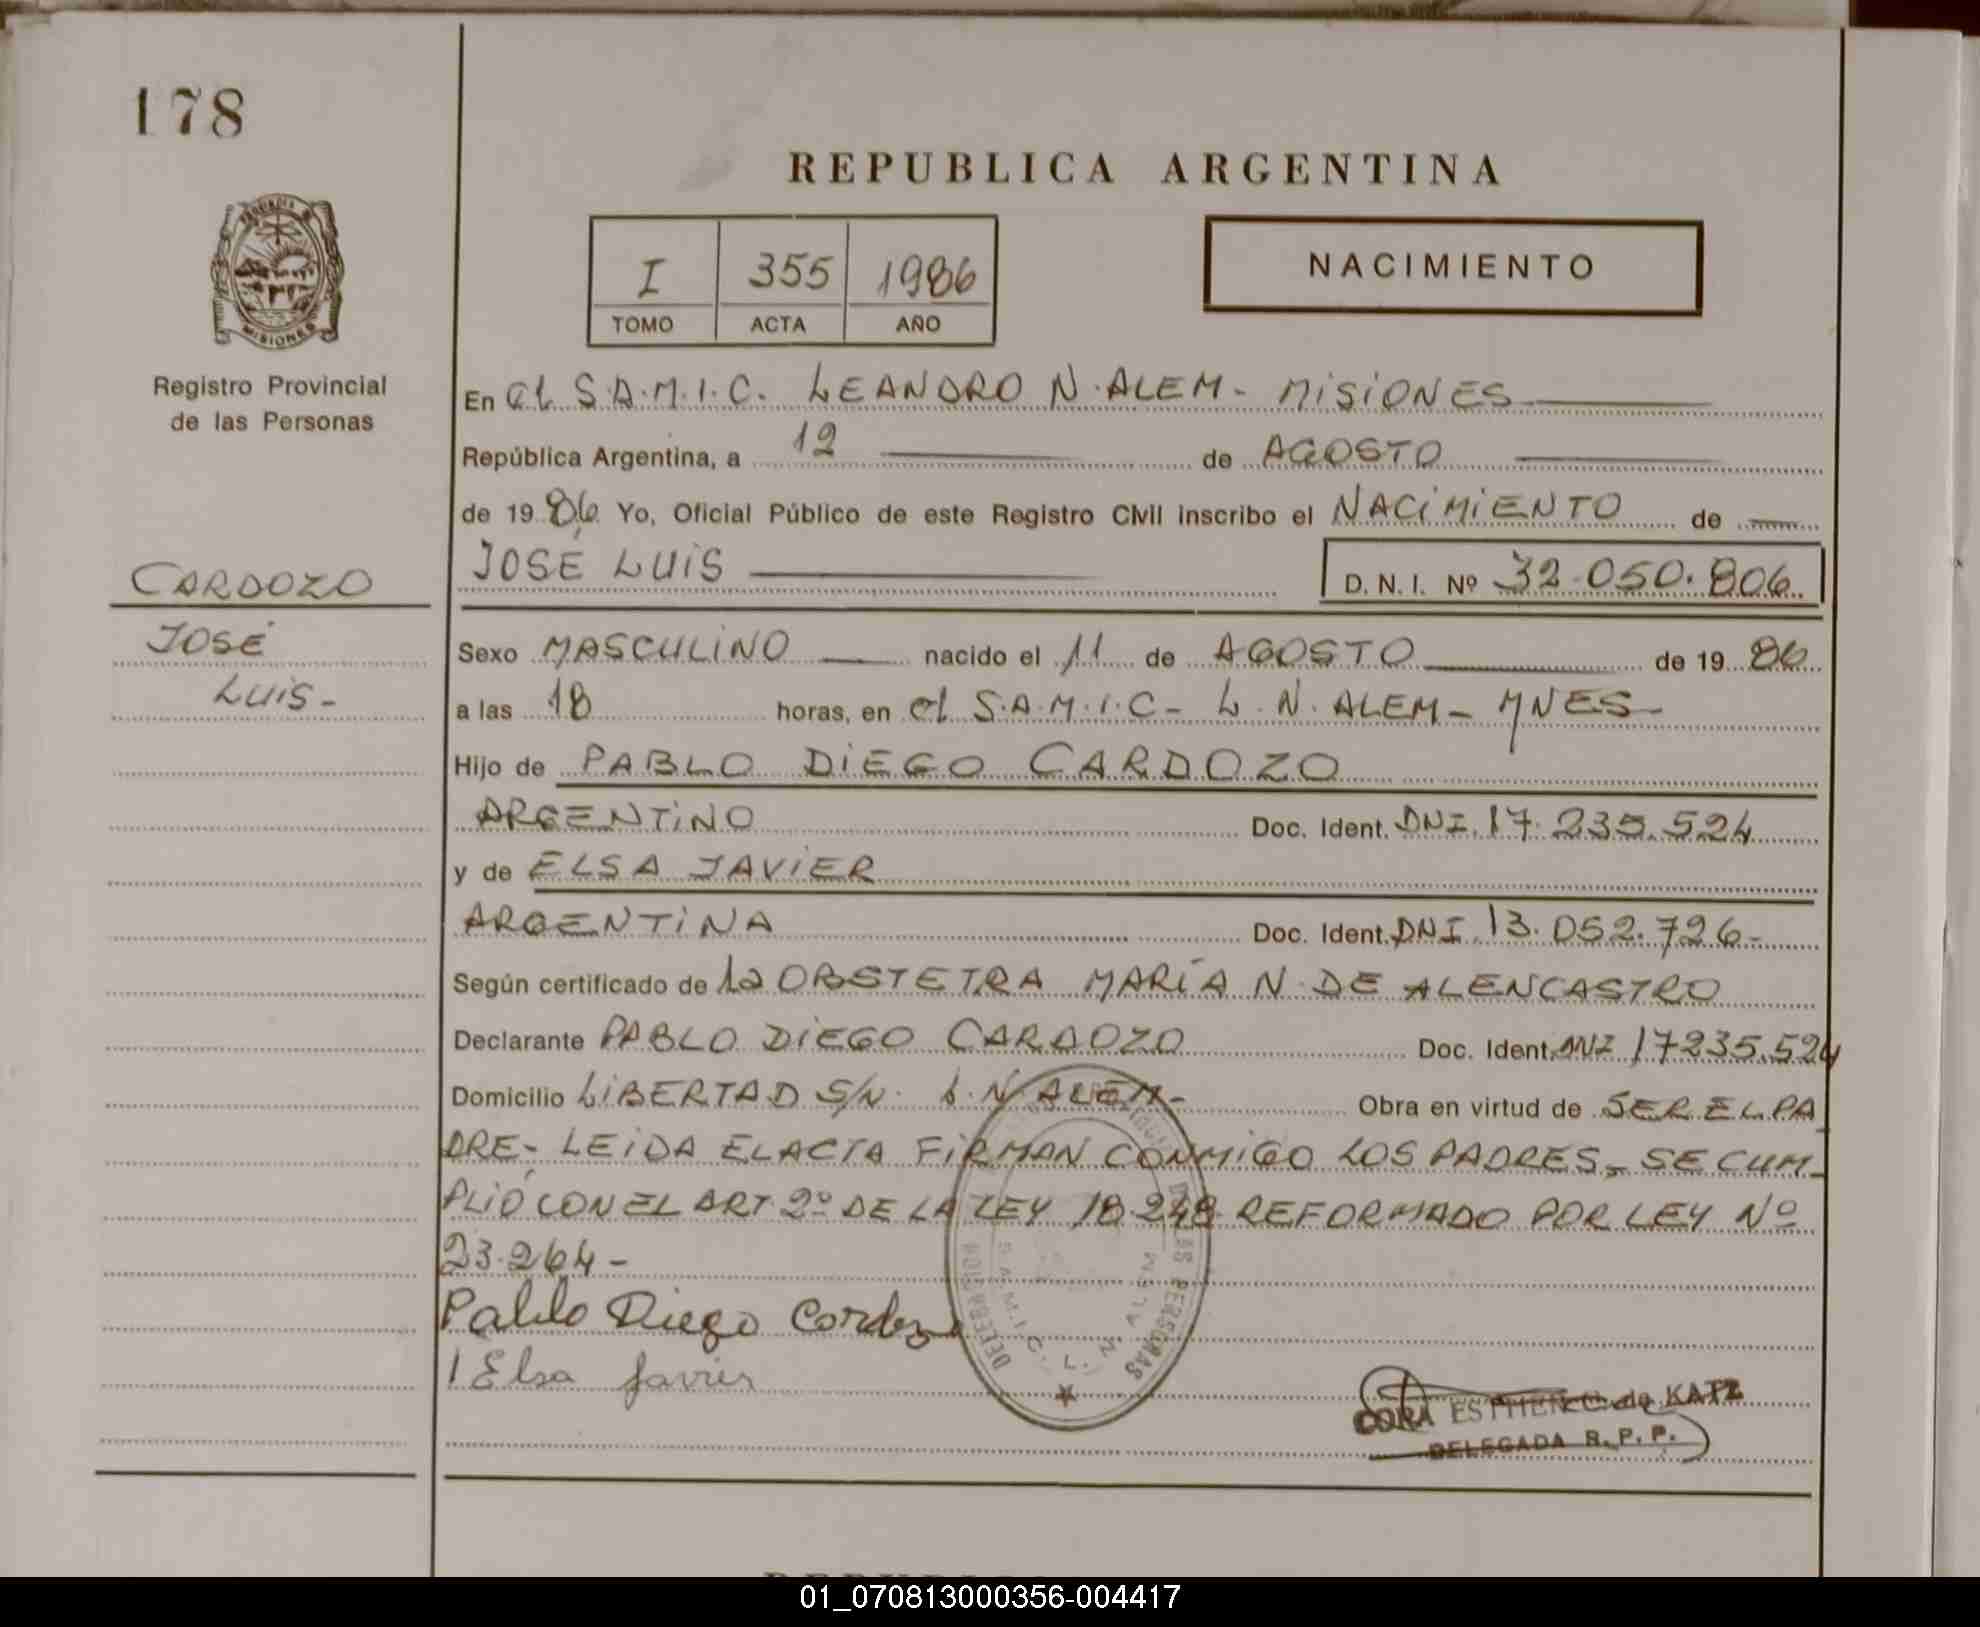 178
REPUBLICA ARGENTINA
I 355 1986
TOMO ACTA AÑO
NACIMIENTO
MISIONES
Registro Provincial
de las Personas
En el S.A.M.I.C. LEANDRO N. ALEM - MISIONES
República Argentina, a 12 de AGOSTO
de 1986 Yo, Oficial Público de este Registro Civil inscribo el NACIMIENTO de
JOSÉ LUIS D.N.I. Nº 32.050.806
CARDOZO
JOSÉ
LUIS-
Sexo MASCULINO nacido el 11 de AGOSTO de 1986
a las 18 horas, en el S.A.M.I.C- L. N. ALEM- MNES-
Hijo de PABLO DIEGO CARDOZO
ARGENTINO Doc. Ident. DNI 17.235.524
y de ELSA JAVIER
ARGENTINA Doc. Ident. DNI 13.052.726-
Según certificado de la OBSTETRA MARÍA N. DE ALENCASTRO
Declarante PABLO DIEGO CARDOZO Doc. Ident. DNI 17235.524
Domicilio LIBERTAD S/N. L.N. ALEM- Obra en virtud de SER EL PA
DRE- LEIDA EL ACTA FIRMAN CONMIGO LOS PADRES, SE CUM-
PLIÓ CON EL ART. 2º DE LA LEY 18.248 REFORMADO POR LEY Nº
23.264-
Pablo Diego Cardozo
Elsa Javier
S.A.M.I.C. L. N. ALEM
PERSONAS
CORA ESTHER C. de KATZ
DELEGADA R.P.P.
01_070813000356-004417